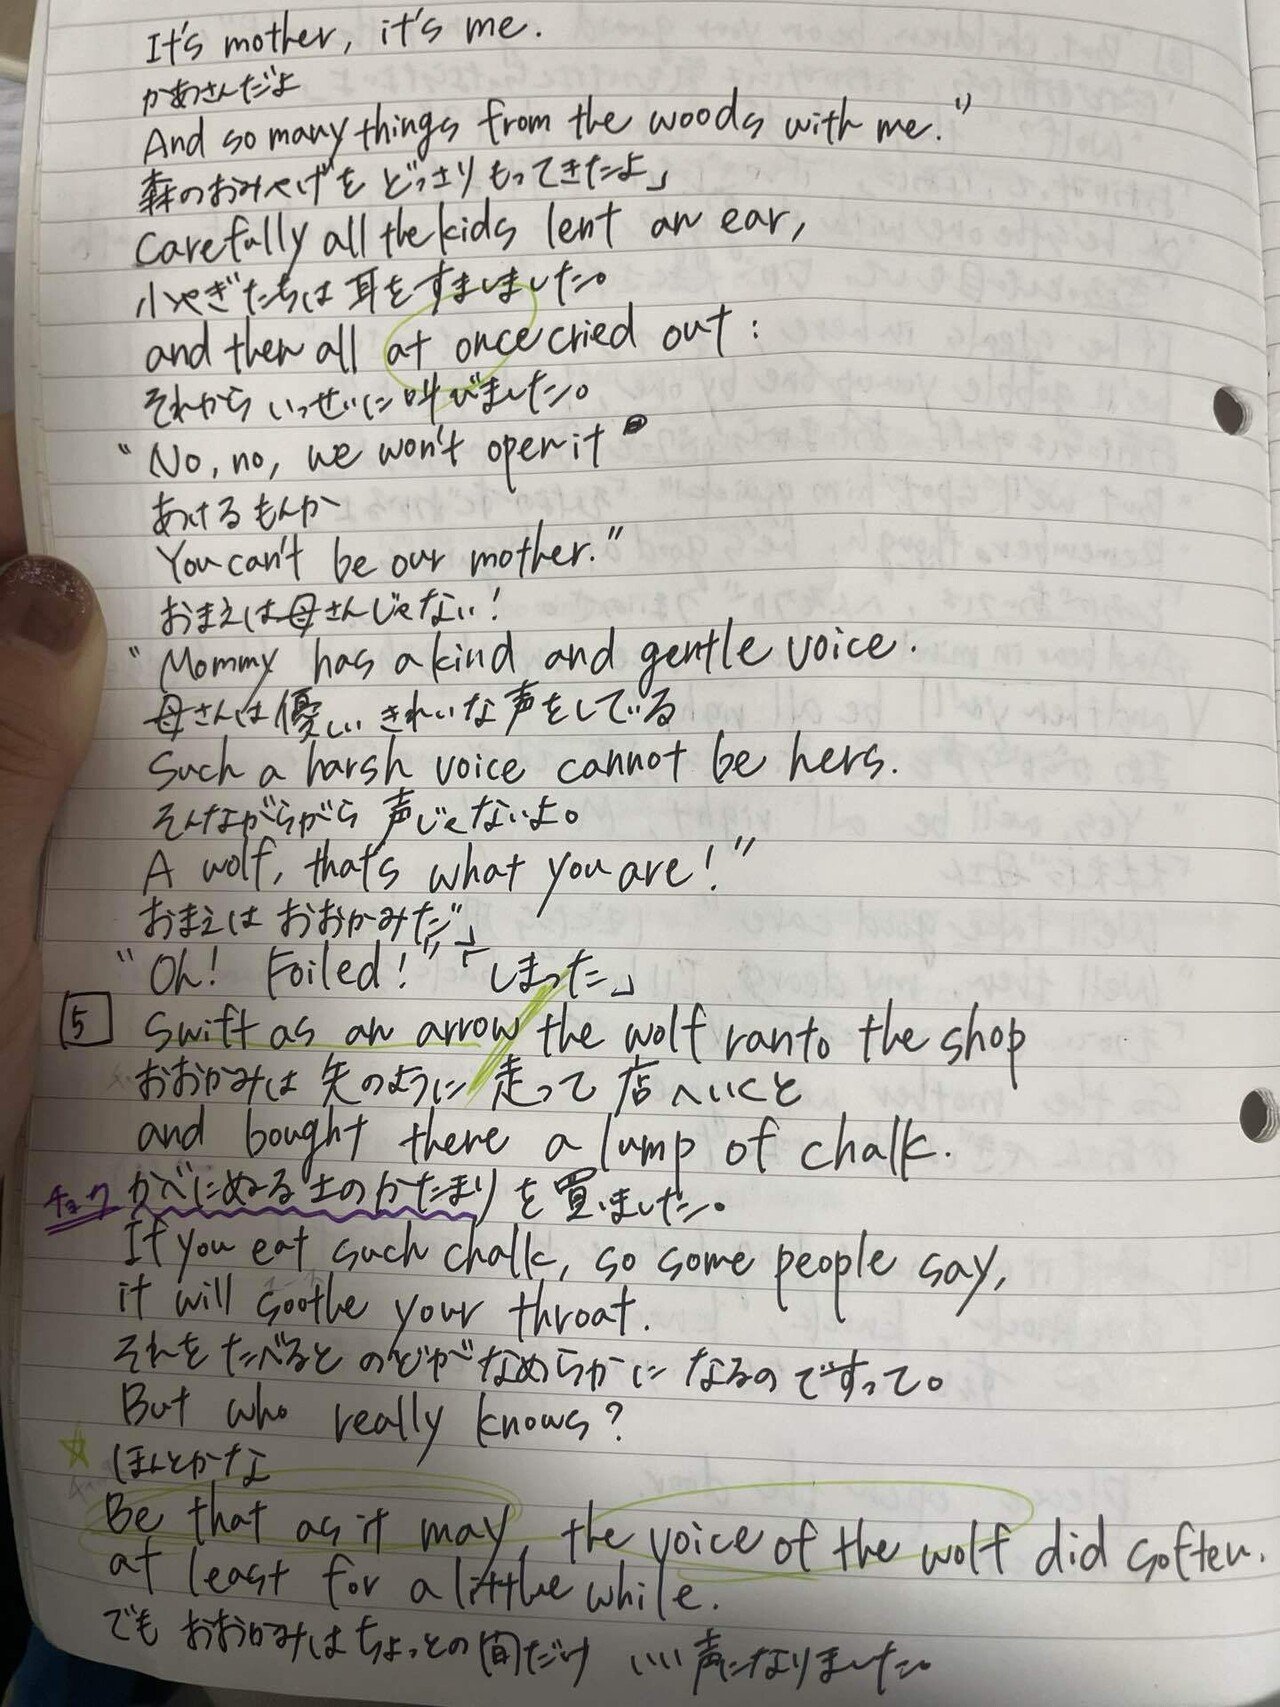 It's mother, it's me.
かあさんだよ
And so many things from the woods with me."
森のおみやげを どっさりもってきたよ」
Carefully all the kids lent an ear,
小やぎたちは耳をすましました。
and then all at once cried out :
それから いっせいに叫びました。
"No, no, we won't open it
あけるもんか
You can't be our mother."
おまえは母さんじゃない!
"Mommy has a kind and gentle voice.
母さんは優しい きれいな声をしている
Such a harsh voice cannot be hers.
そんながらがら声じゃないよ。
A wolf, that's what you are!"
おまえは おおかみだ」
"Oh! Foiled!" 「しまった」
5 Swift as an arrow the wolf ran to the shop
おおかみは 矢のように走って 店へいくと
and bought there a lump of chalk.
チョーク かべにぬる土のかたまりを買いました。
If you eat such chalk, so some people say,
it will soothe your throat.
それをたべると のどがなめらかに なるのですって。
But who really knows?
ほんとかな
Be that as it may, the voice of the wolf did soften.
at least for a little while.
でも おおかみはちょっとの間だけ いい声になりました。